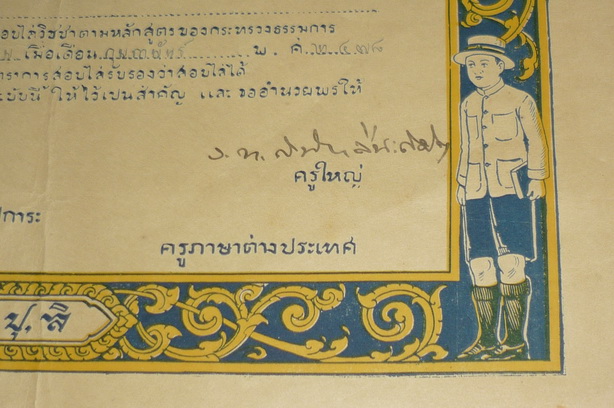 สอบไล่วิชชาตามหลักสูตร์ของกระทรวงธรรมการ
เมื่อเดือน กุมภาพันธ์ พ. ศ. ๒๔๗๘
การสอบไล่รับรองว่าสอบไล่ได้
ฉบับนี้ ให้ไว้เปนสำคัญ และ ขออำนวยพรให้
ครูใหญ่
การะ
ครูภาษาต่างประเทศ
ปุ. ลิ